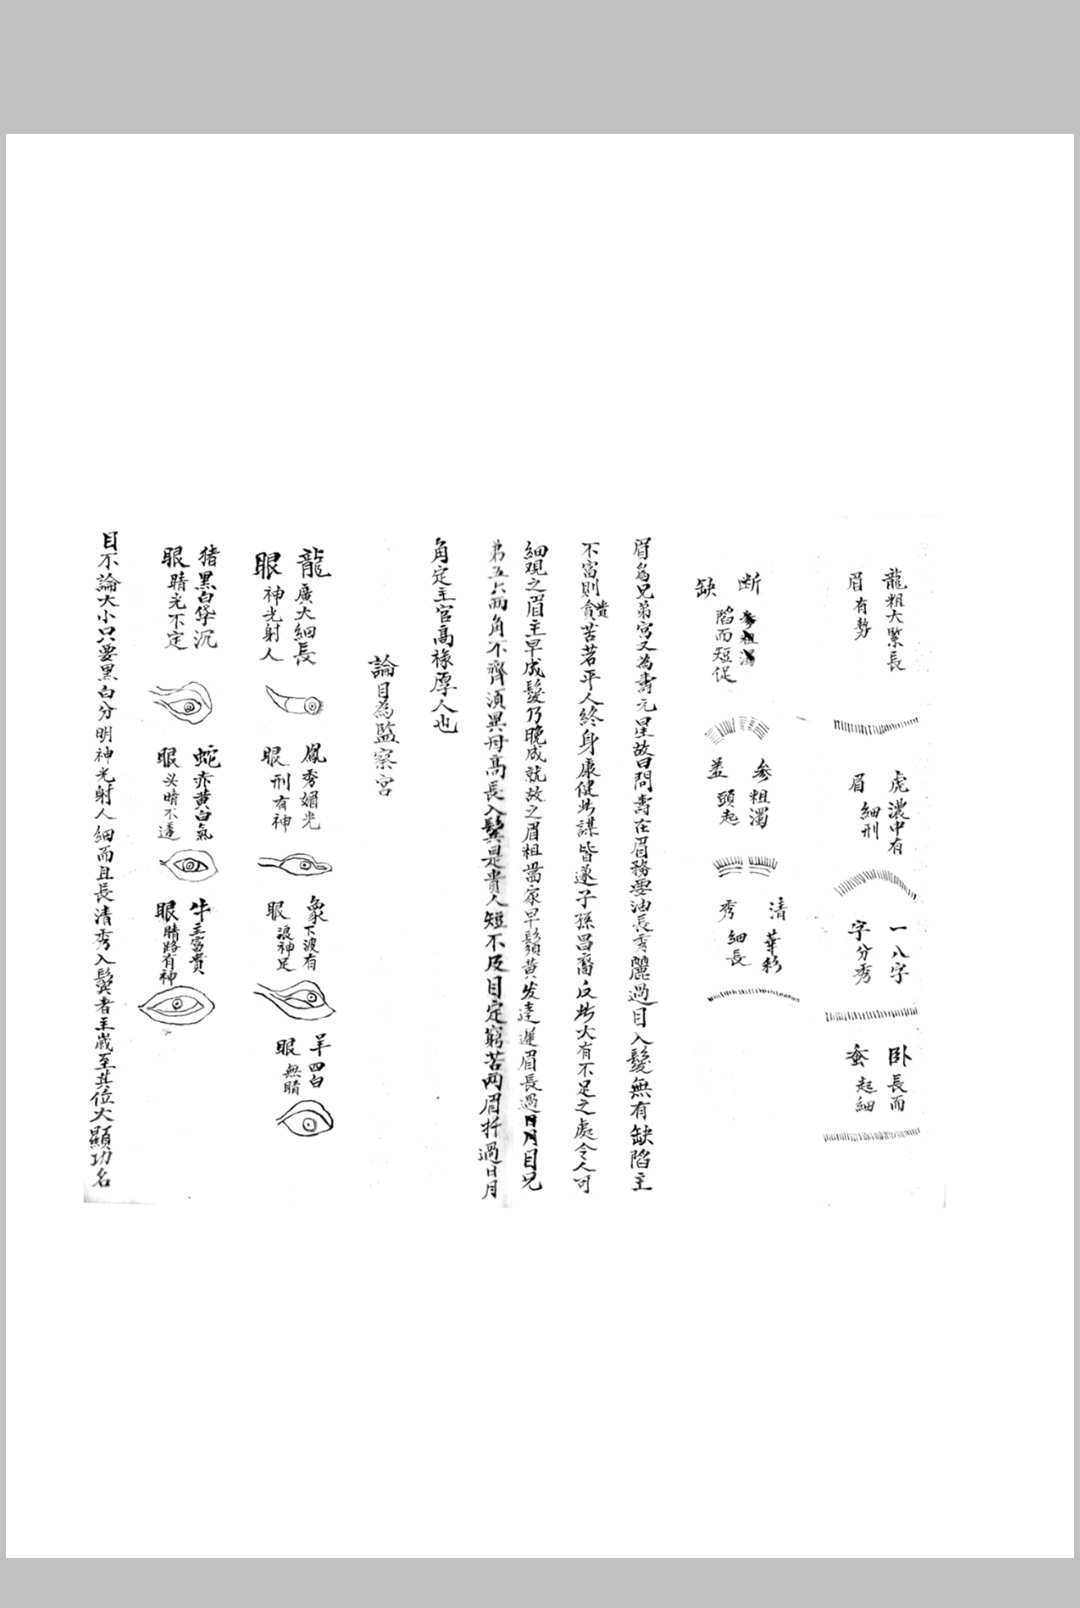 龍粗大緊長
眉有勢
虎濃中有
眉細刑
一八字
字分秀
卧長而
蚕起細
断
缺陷而短促
参粗濁
盖頭起
清華彩
秀細長
眉為兄弟宮又為壽元星故曰問壽在眉務要油長秀麗過目入鬢無有缺陷主
不富則貴貧苦若平人終身康健此謀皆遂子孫昌裔反此大有不足之處令人可
細观之眉主早成髮乃晚成就故之眉粗當家早鬚黄发達遲眉長過日月目兄
弟五六両角不齊須異母高長入鬓是貴人短不及目定窮苦両眉折過日月
角定主官高祿厚人也
論目為監察宮
龍廣大細長
眼神光射人
鳳秀媚光
眼刑有神
象下波有
眼浪神足
羊四白
眼無睛
猪黑白沉
眼睛光不定
蛇赤黄白氣
眼头睛不
牛主富貴
眼睛路有神
目不論大小只要黑白分明神光射人細而且長清秀入鬓者主歲至其位大顯功名